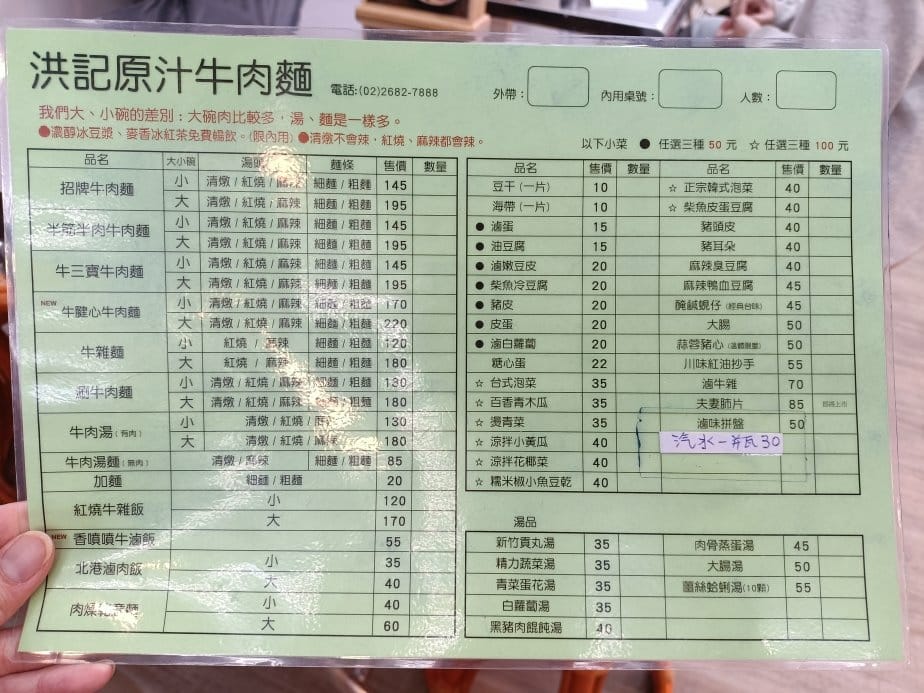 洪記原汁牛肉麵
電話:(02)2682-7888
外帶:
內用桌號:
人數:
我們大、小碗的差別:大碗肉比較多,湯、麵是一樣多。
●濃醇冰豆漿、麥香冰紅茶免費暢飲。(限內用) ●清燉不會辣,紅燒、麻辣都會辣。
以下小菜 ● 任選三種 50 元 ☆ 任選三種 100 元
品名 大小碗 湯頭 麵條 售價 數量
招牌牛肉麵 小 清燉 / 紅燒 / 麻辣 細麵 / 粗麵 145
大 清燉 / 紅燒 / 麻辣 細麵 / 粗麵 195
半筋半肉牛肉麵 小 清燉 / 紅燒 / 麻辣 細麵 / 粗麵 145
大 清燉 / 紅燒 / 麻辣 細麵 / 粗麵 195
牛三寶牛肉麵 小 清燉 / 紅燒 / 麻辣 細麵 / 粗麵 145
大 清燉 / 紅燒 / 麻辣 細麵 / 粗麵 195
NEW 牛腱心牛肉麵 小 清燉 / 紅燒 / 麻辣 細麵 / 粗麵 170
大 清燉 / 紅燒 / 麻辣 細麵 / 粗麵 220
牛雜麵 小 紅燒 / 麻辣 細麵 / 粗麵 120
大 紅燒 / 麻辣 細麵 / 粗麵 180
涮牛肉麵 小 清燉 / 紅燒 / 麻辣 細麵 / 粗麵 130
大 清燉 / 紅燒 / 麻辣 細麵 / 粗麵 180
牛肉湯(有肉) 小 清燉 / 紅燒 / 麻辣 130
大 清燉 / 紅燒 / 麻辣 180
牛肉湯麵(無肉) 清燉 / 麻辣 細麵 / 粗麵 85
加麵 細麵 / 粗麵 20
紅燒牛雜飯 小 120
大 170
NEW 香噴噴牛滷飯 55
北港滷肉飯 小 35
大 40
肉燥乾意麵 小 40
大 60
品名 售價 數量 品名 售價 數量
豆干(一片) 10 ☆ 正宗韓式泡菜 40
海帶(一片) 10 ☆ 柴魚皮蛋豆腐 40
● 滷蛋 15 豬頭皮 40
● 油豆腐 15 豬耳朵 40
● 滷嫩豆皮 20 麻辣臭豆腐 40
● 柴魚冷豆腐 20 麻辣鴨血豆腐 45
● 豬皮 20 醃鹹蜆仔(經典台味) 45
● 皮蛋 20 大腸 50
● 滷白蘿蔔 20 蒜蓉豬心(溫體限量) 50
糖心蛋 22 川味紅油抄手 55
☆ 台式泡菜 35 滷牛雜 70
☆ 百香青木瓜 35 夫妻肺片 85
☆ 燙青菜 35 滷味拼盤 50
☆ 涼拌小黃瓜 40 汽水一瓶30
☆ 涼拌花椰菜 40
☆ 糯米椒小魚豆乾 40
湯品
新竹貢丸湯 35 肉骨蒸蛋湯 45
精力蔬菜湯 35 大腸湯 50
青菜蛋花湯 35 薑絲蛤蜊湯(10顆) 55
白蘿蔔湯 35
黑豬肉餛飩湯 40